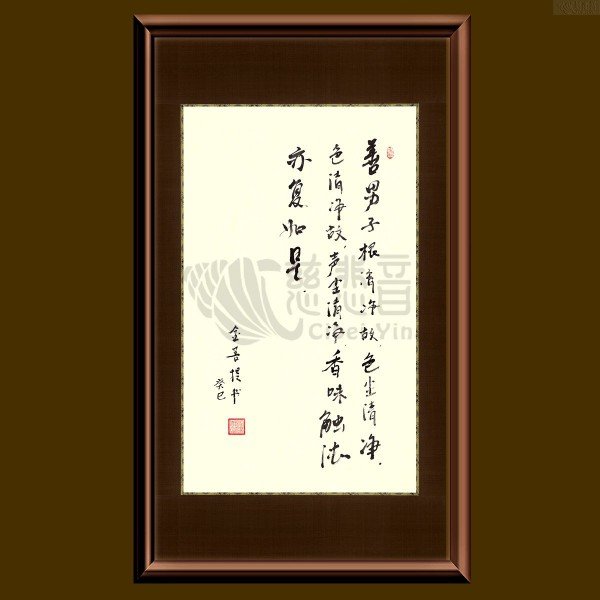 善男子根清净故，色尘清净，
色清净故，声尘清净，香味触法
亦复如是。
金菩提书
癸巳
慈悲音